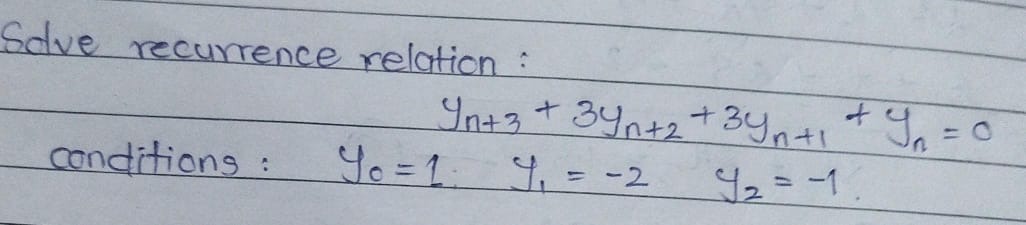 Solve recurrence relation :
yₙ₊₃ + 3yₙ₊₂ + 3yₙ₊₁ + yₙ = 0
conditions : y₀ = 1. y₁ = -2 y₂ = -1.